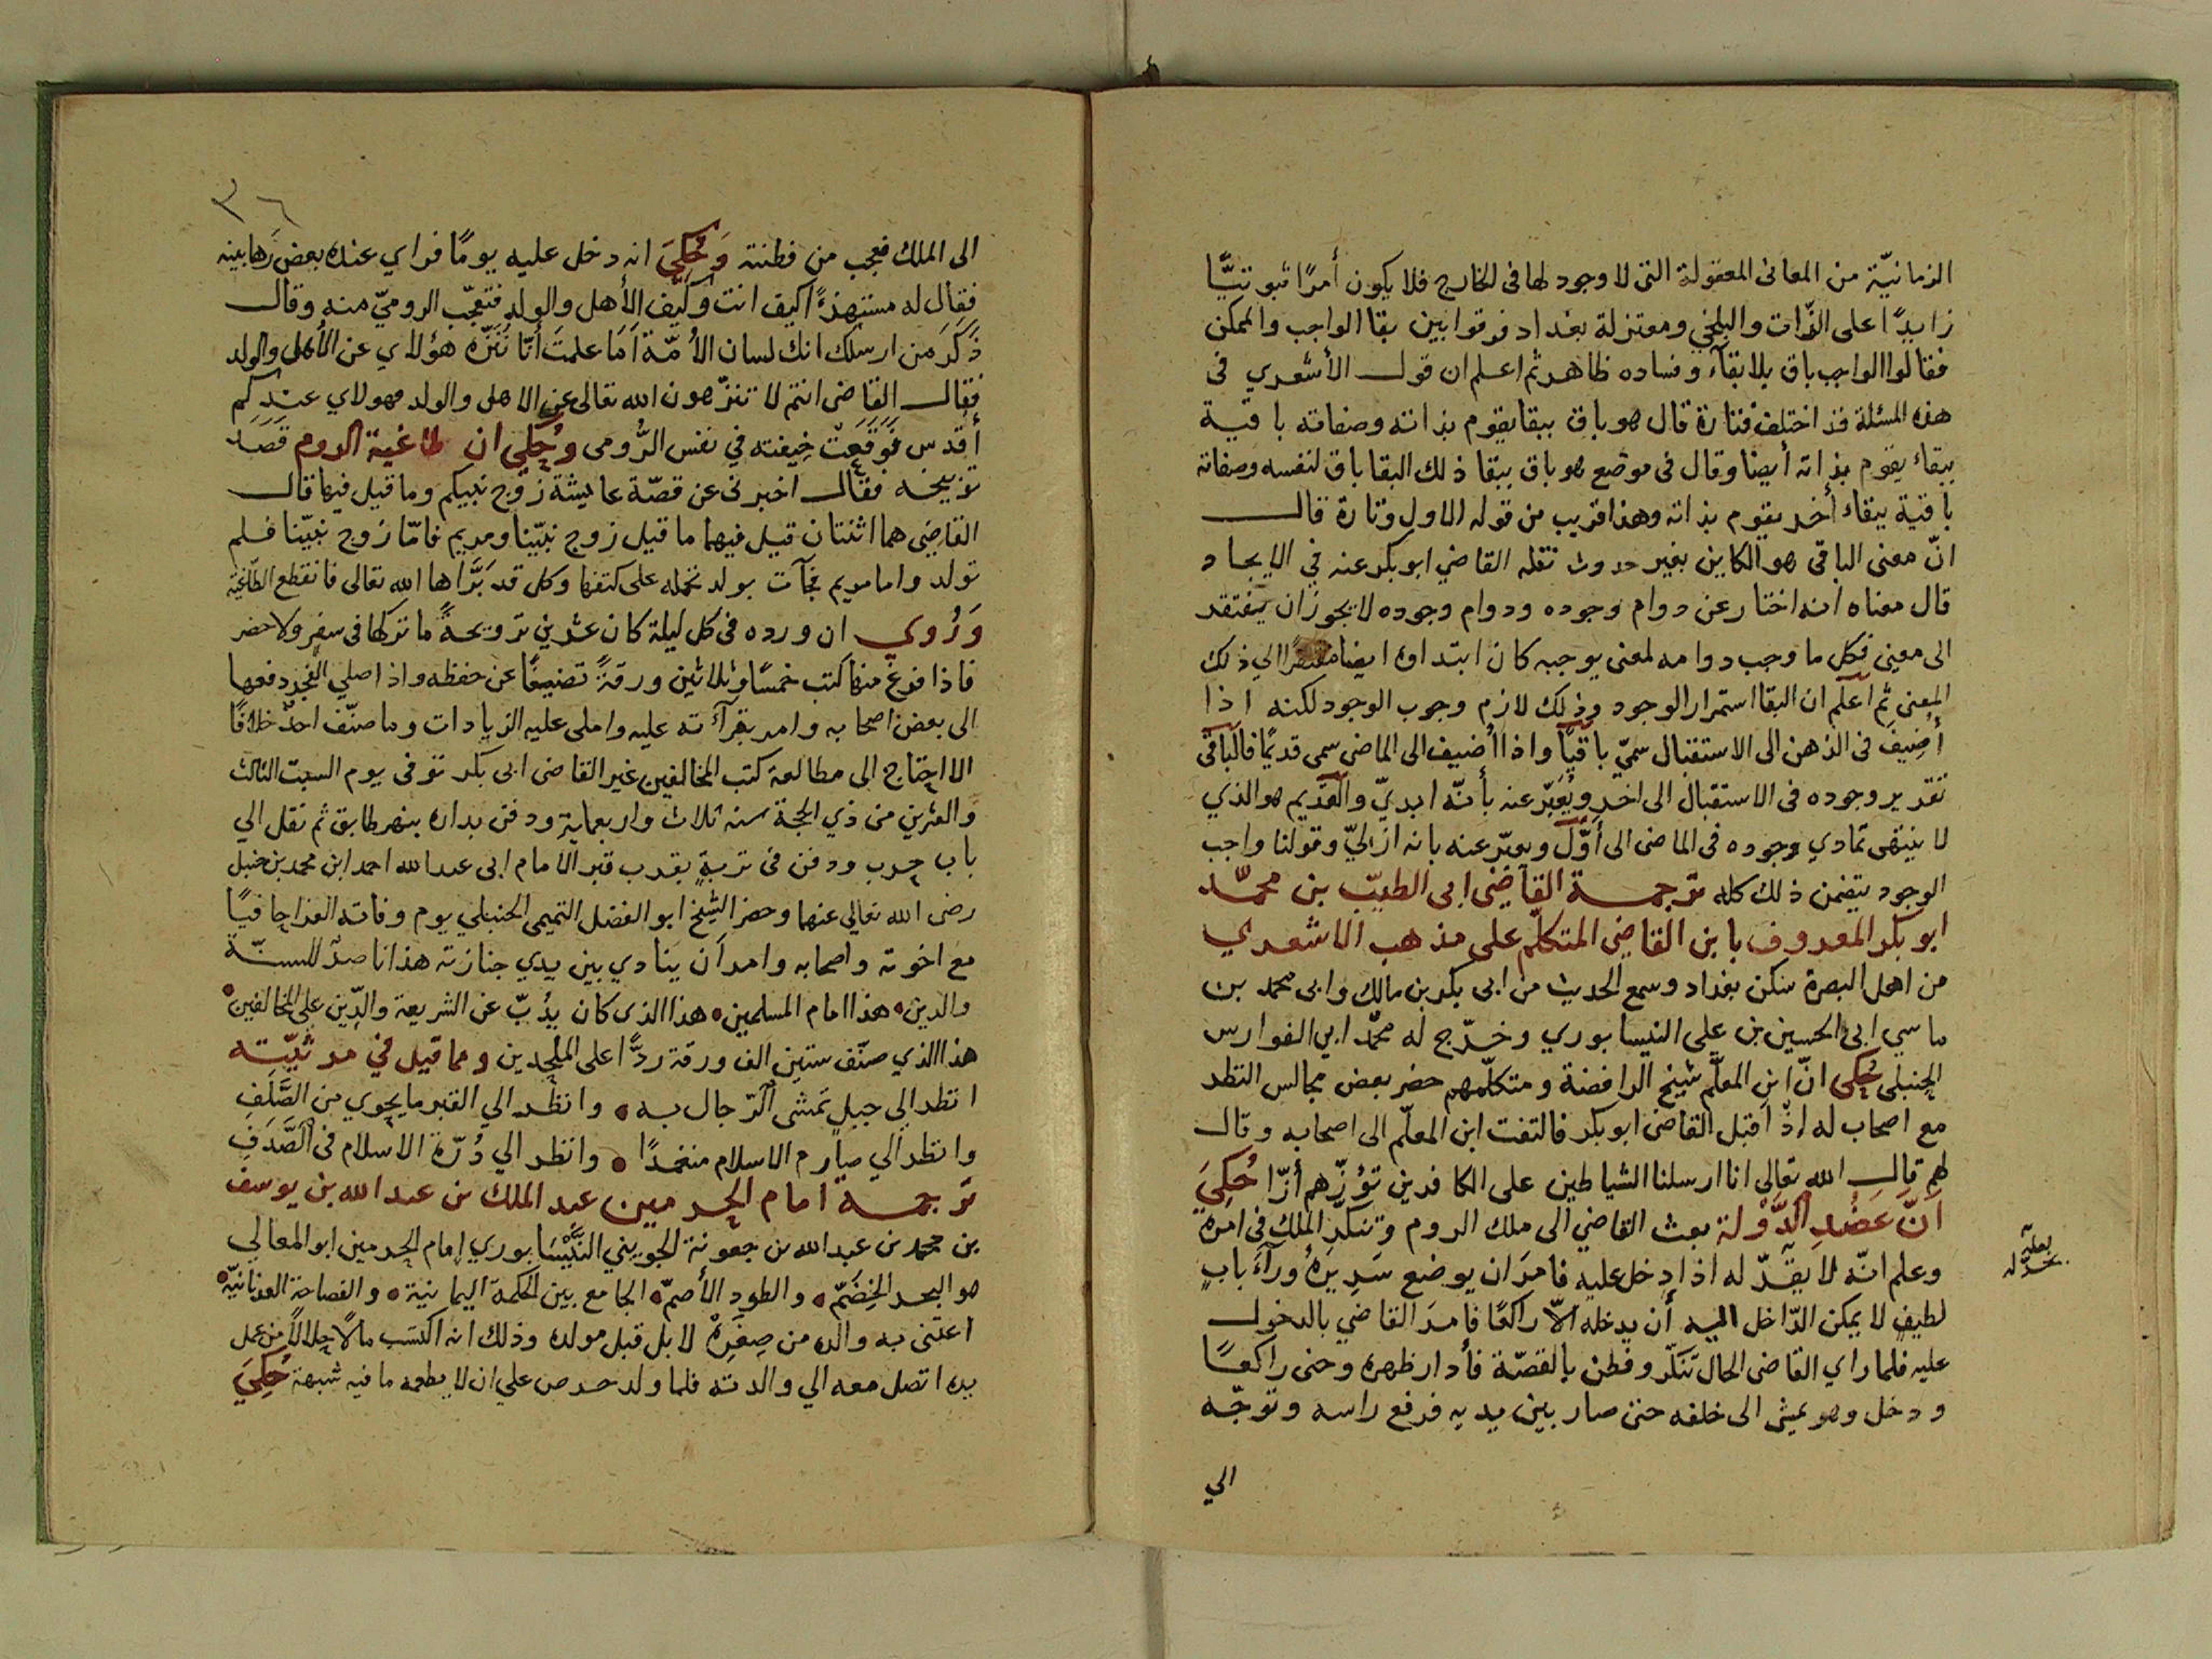 الزمانيّة من المعانى المعقولة التى لا وجود لها فى الخارج فلا يكون أمرًا ثبوتيًّا
زايدًا على الذّات والبلخي ومعتزلة بغداد فرقوا بين بقا الواجب والممكن
فقالوا الواجب باق بلا بقآء وفساده ظاهر ثم اعلم ان قول الأشعري فى
هذه المسئلة قد اختلف فتارة قال هو باق ببقا يقوم بذاته وصفاته باقية
ببقاء يقوم بذاته أيضا وقال فى موضع هو باق ببقا ذلك البقا باق لنفسه وصفاته
باقية ببقاء أخر يقوم بذاته وهذا قريب من قوله الاول وتارة قال
انّ معنى الباقى هو الكاين بغير حدوث نقله القاضي ابو بكر عنه في الايجاد
قال معناه انه اختار عن دوام وجوده ودوام وجوده لا يجوز ان يفتقد
الى معنى فكل ما وجب دوامه لمعنى يوجبه كان ابتداوه ايضا الي ذلك
المعنى ثم اعلم ان البقا استمرار الوجود وذلك لازم وجوب الوجود لكنه اذا
أضيف فى الذهن الى الاستقبال سميّ باقيًا واذا أضيف الى الماضى سمى قديمًا فالباقى
تقدير وجوده فى الاستقبال الى اخر ويُعَبّر عنه بأنّه ابديّ والقديم هو الذي
لا ينتهى تمادي وجوده فى الماضى الى أوّل ويعبّر عنه بانه ازليّ وقولنا واجب
الوجود يتضمن ذلك كله ترجمة القاضى ابى الطيّب بن محمّد
ابو بكر المعروف بابن القاضى المتكلّم على مذهب الاشعري
من اهل البصرة سكن بغداد وسمع الحديث من ابى بكر بن مالك وابى محمد بن
ماسي ابى الحسين بن علي النيسابوري وخرّج له محمّد ابي الفوارس
الحنبلى حكى انّ ابن المعلّم شيخ الرافضة ومتكلّمهم حضر بعض مجالس النظر
مع اصحاب له اذ اقبل القاضى ابو بكر فالتفت ابن المعلّم الى اصحابه وقال
لهم قال الله تعالى انا ارسلنا الشياطين على الكافرين تؤزّهم أزّا حُكِيَ
أنّ عَضُدِ الدَّوْلة بعث القاضي الى ملك الروم وتنكر الملك فى امره
وعلم انّه لا يقدّ له اذا دخل عليه فامرَ ان يوضع سَرِيرَهُ ورآء بابٍ
لطيفٍ لا يمكن الدّاخل اليه أن يدخله الّا راكعًا فامرَ القاضي بالدخول
عليه فلما راي القاضى الحال تنكّر وفطن بالقصّة فأدار ظهره وحنى راكعًا
ودخل وهو يمشى الى خلفه حتى صار بين يديه فرفع راسه وتوجّه
الي
٣٦
الى الملك فعجب من فطنته وَحُكِيَ انه دخل عليه يومًا فراي عنده بعض رَهابينه
فقال له مستهزءًا كيف انت وكيف الأهل والولد فتعجّب الروميّ منه وقال
ذكرَ من ارسلك انك لسان الأمّة أمَا علمتَ أنّا نُنَزّه هؤلاي عن الأهل والولد
فقال القاضى انتم لا تنزّهون الله تعالى عن الاهل والولد فهولاي عندكم
أقدس فوقعت خيفته في نفس الرُّومى وحُكي ان طاغية الروم قصَد
توبيخه فقال اخبرنى عن قصّة عايشة زوج نبيكم وما قيل فيها قال
القاضى هما اثنتان قيل فيهما ما قيل زوج نبيّنا ومريم فامّا زوج نبيّنا فلم
تولد واما مريم فجآت بولد تحمله على كتفها وكل قد بَرَّاها الله تعالى فانقطع الطّاغية
وَرُوي ان ورده فى كل ليلة كان عشرين ترويحةً ما تركها فى سفر ولا حضر
فاذا فرغ منها كتب خمسًا وثلاثين ورقةً تصنيفًا عن حفظه واذا صلى الفجر دفعها
الى بعض اصحابه وامر بقرآءته عليه واملى عليه الزيادات وما صنّف احدٌ خلافًا
الا احتاج الى مطالعة كتب المخالفين غير القاضى ابى بكر توفى يوم السبت الثالث
والعشرين من ذي الحجة سنه ثلاث واربعمايةٍ ودفن بداره بنهر طابق ثم نقل الي
باب حرب ودفن فى تربةٍ بقرب قبر الامام ابى عبد الله احمد ابن محمد بن حنبل
رضى الله تعالي عنهما وحضر الشيخ ابو الفضل التميمى الحنبلي يوم وفاته العزا حافيًا
مع اخوته واصحابه وامر أن ينادي بين يدي جنازته هذا ناصر للسنّة
والدين • هذا امام المسلمين • هذا الذى كان يذُبّ عن الشريعة والدّين على المخالفين •
هذا الذي صنّف ستين الف ورقة ردًّا على الملحدين ومما قيل في مرثيّته
انظر الي جبلٍ تمشى الرّجال به • وانظر الي القبر ما يحوي من الصَّلَفِ
وانظر الي صارم الاسلام منغمدًا • وانظر الي دُرّة الاسلام فى الصَّدَفِ
ترجمة امام الحرمين عبد الملك بن عبد الله بن يوسف
بن محمد بن عبد الله بن جعونة الجويني النَّيْسَابوري إمام الحرمين ابو المعالي
هو البحر الخِضَمّ • والطود الأصمّ • الجامع بين الحكمة اليمانية • والفصاحة العدنانيّة •
اعتنى به والده من صِغَرِهْ لا بل قبل مولده وذلك انه اكتسب مالًا حلالًا من عمل
يده اتصل معه الي والدته فلما ولد حرص علي ان لا يطعمه ما فيه شبهة حُكِيَ